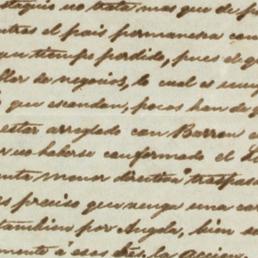 no trata mas que de
el pais permanesca con
tiempo perdido, pues el
de negocios, lo cual es
que escanden, pocos han de
estar arreglado con Barron
no haberse conformado el
menor direction traspas
preciso que venga una car
tambien por Angela, bien
á esos tres, la accion